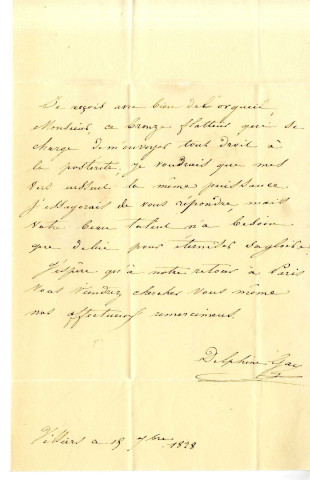 Je reçois avec bien de l'orgueil,
Monsieur, ce bronze flatteur qui se
charge de m'envoyer tout droit à
la postérité, je voudrais que mes
vers eussent la même puissance
j'essayerais de vous répondre, mais
votre beau talent n'a besoin
que de lui pour éterniser sa gloire.
J'espère qu'à notre retour à Paris
vous viendrez chercher vous même
nos affectueux remerciemens.
Delphine Gay
Villiers ce 15 9bre 1828